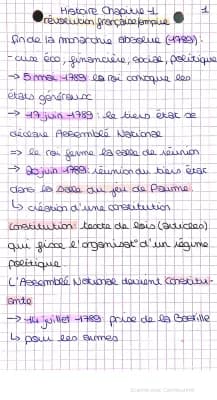 Histoire Chapitre 1
1
révolution française/empire
fin de la monarchie absolue (1789) :
- crise éco, financière, social, politique
→ 5 mai 1789 le roi convoque les
états généraux
→ 17 juin 1789 : le tiers état se
déclare Assemblé National
⇒ le roi ferme la salle de réunion
→ 20 juin 1789 réunion du tiers état
dans la salle du jeu de Paume
↳ création d'une constitution
constitution : texte de lois (articles)
qui fixe l'organisat° d'un régime
politique
L'Assemblé National devient Constitu-
ante
→ 14 juillet 1789 prise de la Bastille
↳ pour les armes